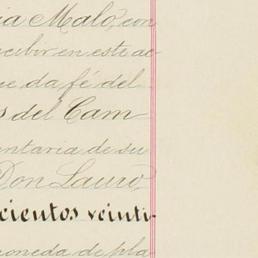 ia Malo, con
recibir en este ac
ue da fé del
s del Cam
entaria de su
Don Lauro,
cientos veinti-
moneda de pla